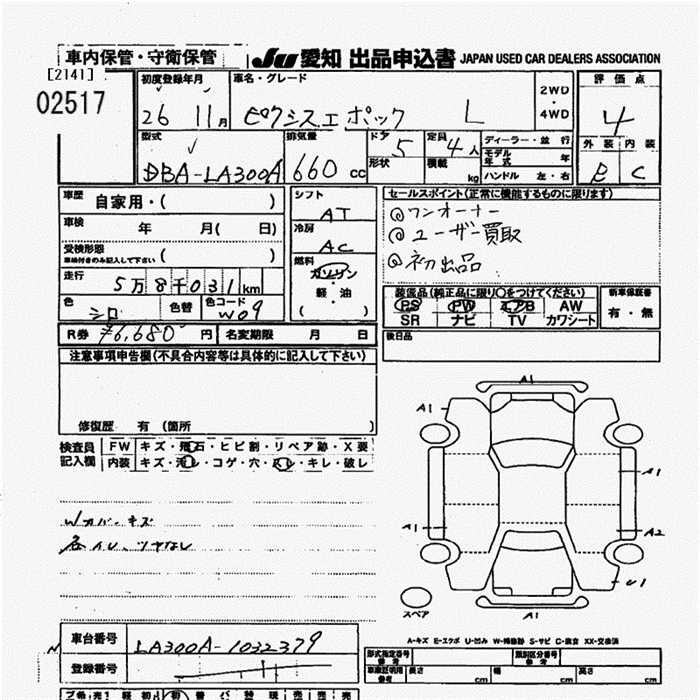 車内保管・守衛保管
JU 愛知 出品申込書 JAPAN USED CAR DEALERS ASSOCIATION
[2141]
02517
初度登録年月
26 11月
車名・グレード
ピクシスエポック L
2WD
・
4WD
評価点
4
外装 内装
B C
型式
DBA-LA300A
排気量
660 cc
ドア
5
形状
定員
4人
積載 kg
ディーラー・並行
モデル年式 年
ハンドル 左・右
車歴 自家用・( )
車検 年 月( 日)
受検形態
車検付きのみ記入して下さい ( )
走行 5万8千031km
色 シロ 色替 色コード W09
シフト
AT
冷房
AC
燃料
ガソリン
・
軽・油
( )
セールスポイント(正常に機能するものに限ります)
◎ワンオーナー
◎ユーザー買取
◎初出品
装備品(純正品に限り○をつけてください)
PS PW エアB AW
SR ナビ TV カワシート
新車保証書
有・無
後日品
R券 ¥6,680円 名変期限 月 日
注意事項申告欄(不具合内容等は具体的に記入して下さい)
修復歴 有 (箇所 )
検査員記入欄
FW キズ・飛石・ヒビ割・リペア跡・X要
内装 キズ・汚レ・コゲ・穴・スレ・キレ・破レ
Wカバーキズ
A1
A1
A1
A1
A2
U1
A1
スペア
A-キズ E-エクボ U-凹み W-補修跡 S-サビ C-腐食 XX-交換済
車台番号 LA300A-1032379
登録番号
型式指定番号
類別区分番号
長さ cm 幅 cm 高さ cm